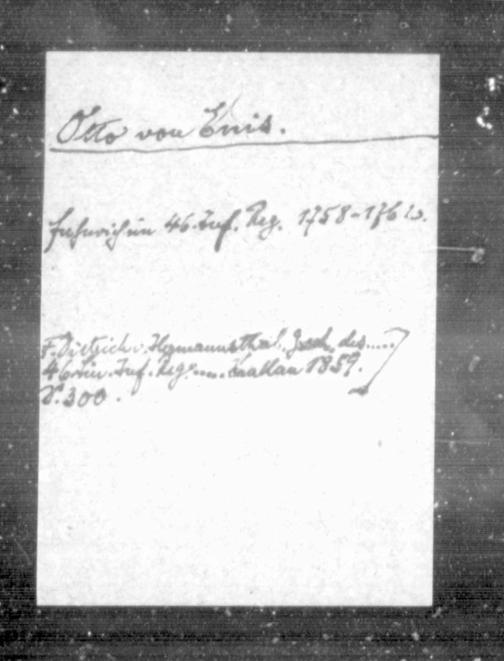 Otto von Enis.
Fähnrich im 46. Inf. Reg. 1758-176
F. Dietrich v. Hermannsthal. Gesch. des.....
46 Inf. Reg. Krakau 1859.
S. 300.